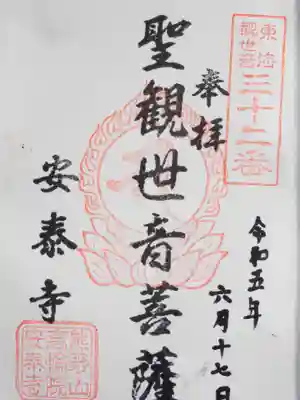 三十二番
奉拝
聖観世音菩薩
令和五年
六月十七日
安泰寺
熊野山
安泰寺